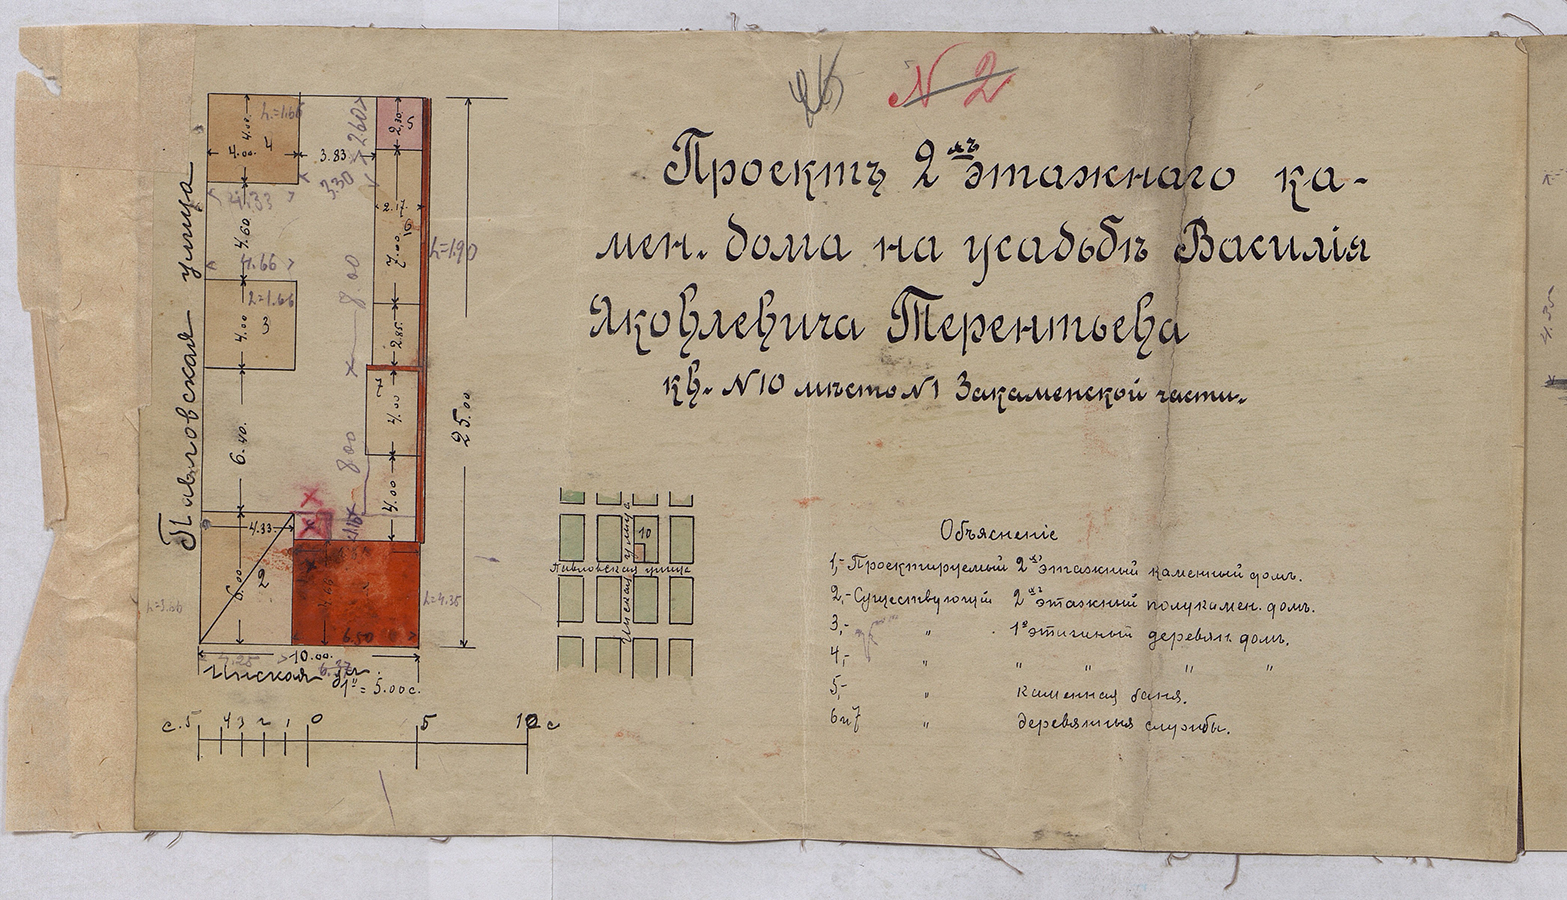 № 2
Проектъ 2хъ этажнаго ка-
мен. дома на усадьбѣ Василія
Яковлевича Терентьева
кв. №10 мѣсто №1 Закаменской части.
Павловская улица
4.00. 4.00. 4 h=1.66
3.83
260
330
2,30 5
4.33
4.60.
4.66
2.17.
7.00. 6
h=1.90
h=1.66
3
4.00
8.00
2.85.
7
4.00
6.40.
800
4.00
25.00
4.33.
6.00.
2
h=3.66
4.66
6.50
h=4.35
4.25
10.00.
Инская ул.
1" = 5.00 с.
с. 5 4 3 2 1 0 5 10 с
10
Павловская улица
Инская улица
Объясненіе
1,- Проектируемый 2хъ этажный каменный домъ.
2,- Существующій 2хъ этажный полукамен. домъ.
3,- " 1о этажный деревян. домъ.
4,- " " " " "
5,- " каменная баня.
6 и 7 " деревянныя службы.